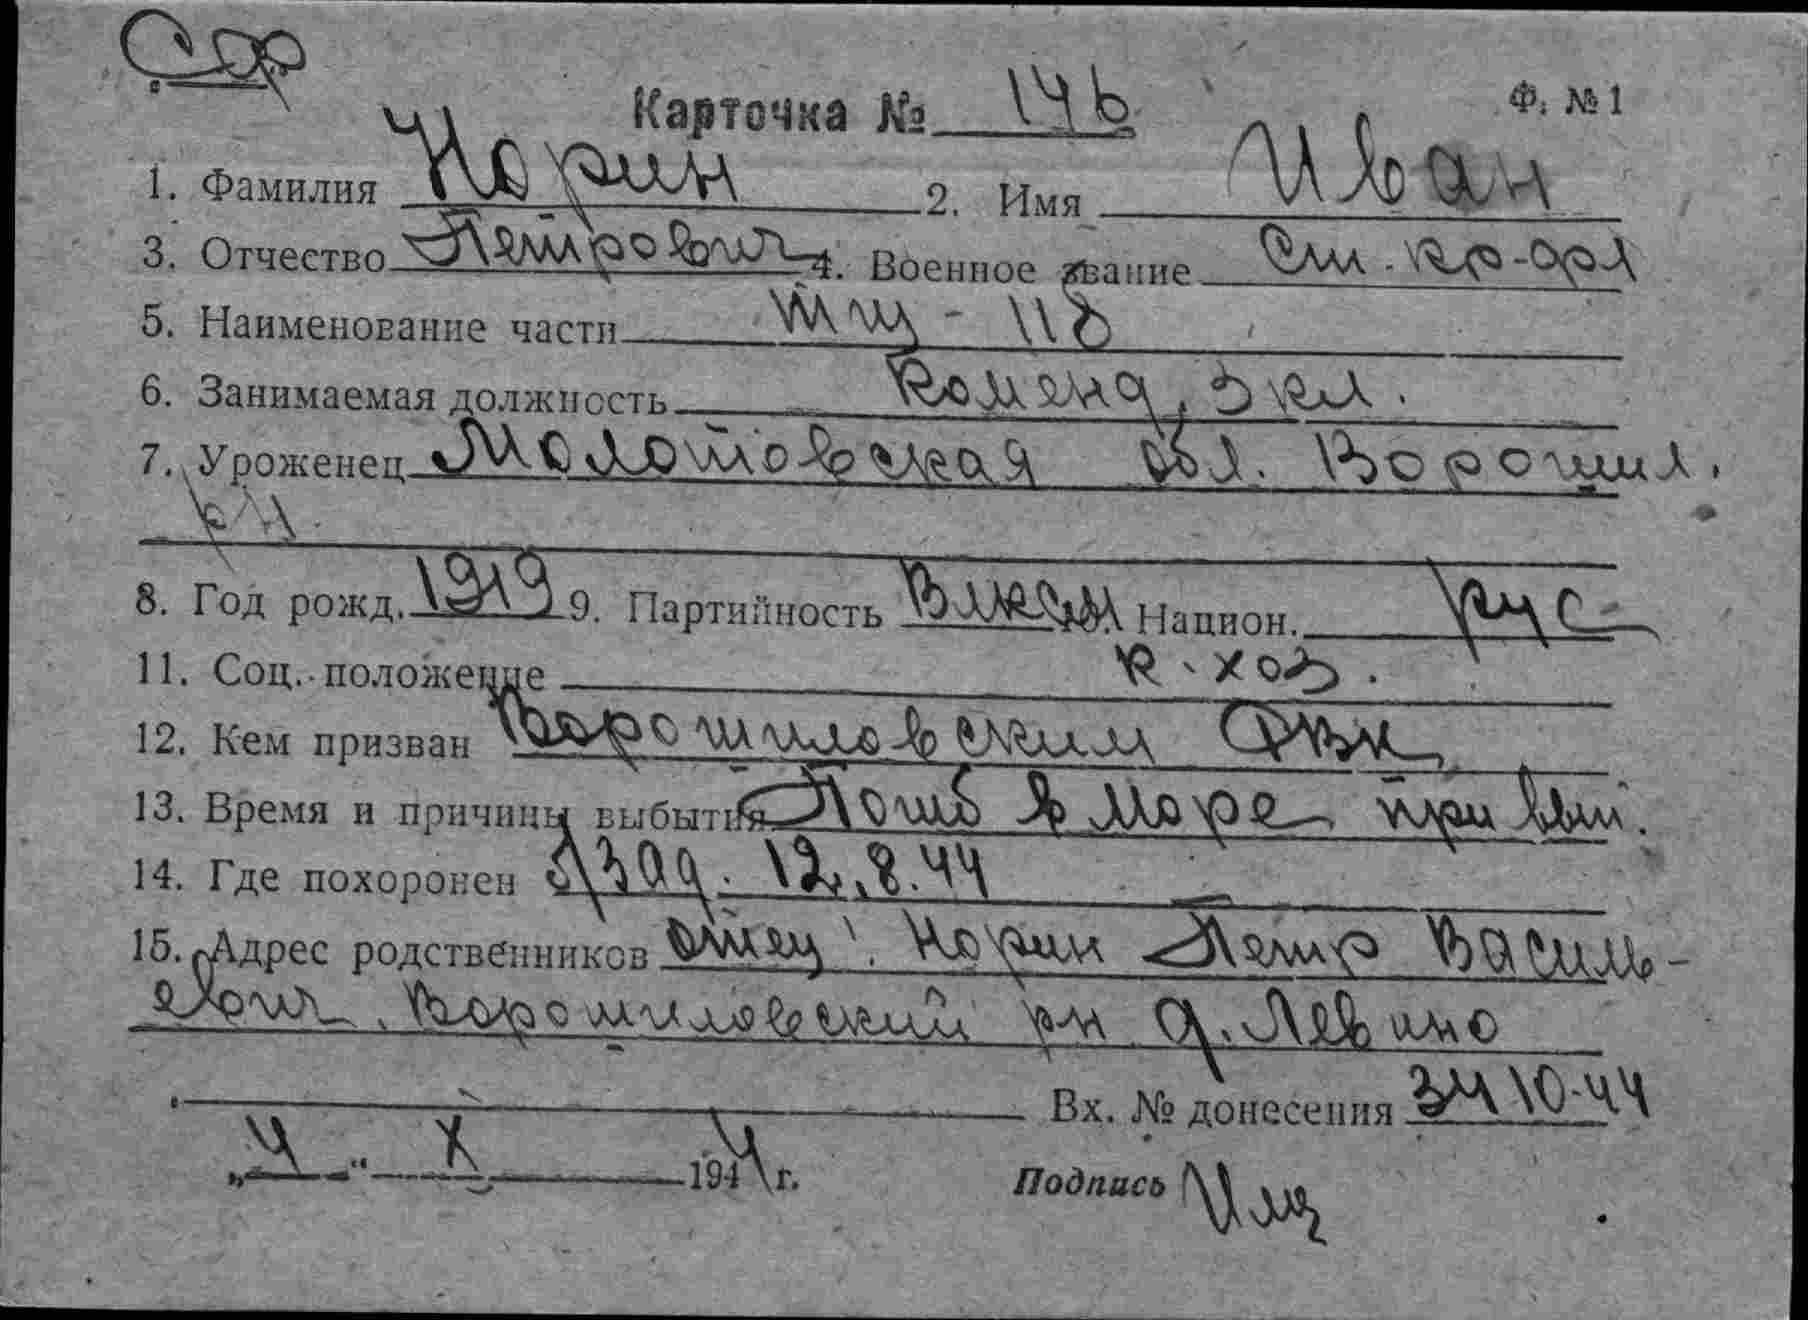 Карточка № 146 Ф. № 1
1. Фамилия Норин 2. Имя Иван
3. Отчество Петрович 4. Военное звание Ст. кр-фл
5. Наименование части ТЩ - 118
6. Занимаемая должность Коменд, 3 кл.
7. Уроженец Молотовская обл. Ворошил.
р-н
8. Год рожд. 1919 9. Партийность ВЛКСМ Национ. рус
11. Соц. положение к-хоз.
12. Кем призван Ворошиловским РВК
13. Время и причины выбытия Погиб в море при вып.
14. Где похоронен б/зад. 12.8.44
15. Адрес родственников отец: Норин Петр Василь-
евич. Ворошиловский р-н д. Левино
Вх. № донесения 34 10-44
„4“ X 1944 г. Подпись